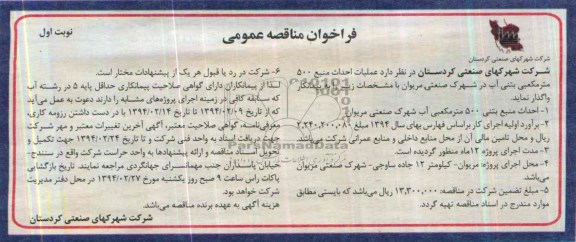 فراخوان مناقصه عمومی
نوبت اول
شرکت شهرکهای صنعتی کردستان
شرکت شهرکهای صنعتی کردستان در نظر دارد عملیات احداث منبع ۵۰۰
مترمکعبی بتنی آب در شهرک صنعتی مریوان با مشخصات زیر را به پیمانکار
واگذار نماید.
۱- احداث منبع بتنی ۵۰۰ مترمکعبی آب شهرک صنعتی مریوان
۲- برآورد اولیه اجرای کار براساس فهارس بهای سال ۱۳۹۴ مبلغ
ریال و محل تامین مالی آن از محل منابع داخلی و منابع عمرانی شرکت می‌باشد.
۳- مدت اجرای پروژه ۱۲ماه منظور گردیده است
۴- محل اجرای پروژه: مریوان- کیلومتر ۱۲ جاده ساوجی- شهرک صنعتی مریوان
می‌باشد.
۵- مبلغ تضمین شرکت در مناقصه: ۱۱۳,۳۰۰,۰۰۰ ریال می‌باشد که بایستی مطابق
موارد مندرج در اسناد مناقصه تهیه گردد.
۶- شرکت در رد یا قبول هر یک از پیشنهادات مختار است.
لذا از پیمانکاران دارای گواهی صلاحیت پیمانکاری حداقل پایه ۵ در رشته آب
که سابقه کافی در زمینه اجرای پروژه‌های مشابه را دارند دعوت به عمل می‌آید
که از تاریخ ۱۳۹۴/۰۲/۰۹ تا تاریخ ۱۳۹۴/۰۲/۱۴ با در دست داشتن رزومه کاری،
معرفی‌نامه، گواهی صلاحیت معتبر، آگهی آخرین تغییرات معتبر و مهر شرکت
جهت دریافت اسناد به واحد فنی شرکت و تا تاریخ ۱۳۹۴/۰۲/۲۴ جهت تکمیل و
تحویل اسناد مناقصه و ارائه پیشنهادها به واحد حراست شرکت واقع در سنندج-
خیابان پاسداران جنب مهمانسرای جهانگردی مراجعه نمایند. تاریخ بازگشایی
پاکات راس ساعت ۹ صبح روز یکشنبه مورخ ۱۳۹۴/۰۲/۲۷ در محل دفتر مدیریت
شرکت خواهد بود.
هزینه آگهی به عهده برنده مناقصه می‌باشد.
شرکت شهرکهای صنعتی کردستان
ParsNamadData